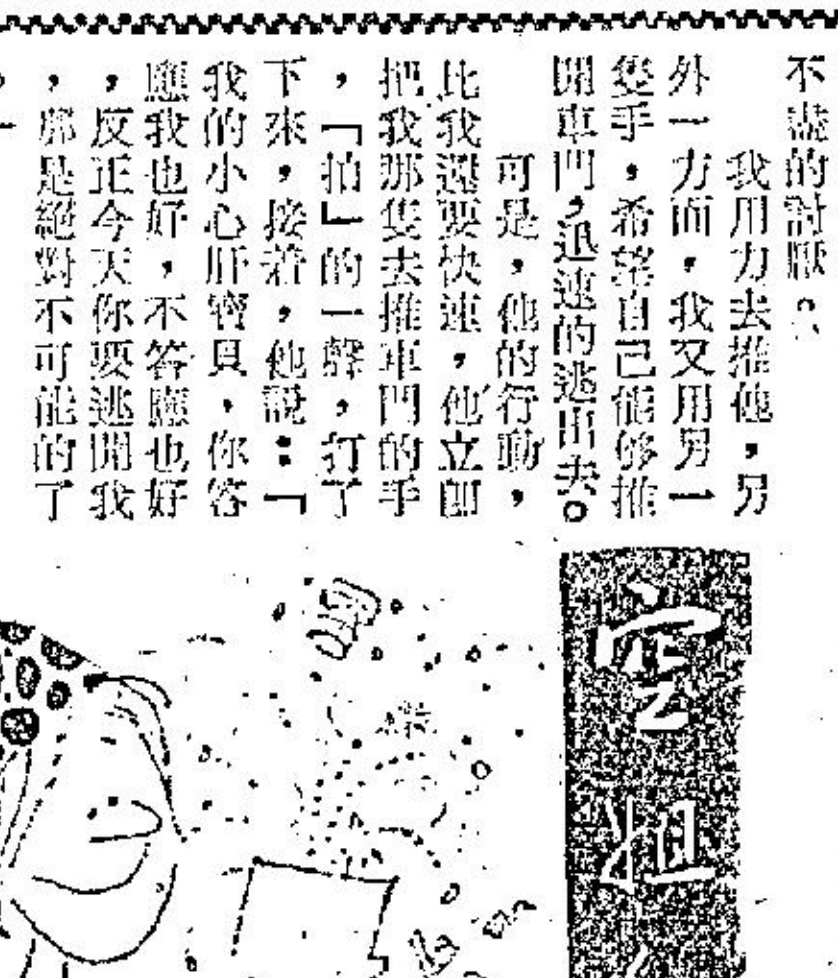 不盡的討厭。
我用力去推他,另
外一方面,我又用另一
隻手,希望自己能够推
開車門,迅速的逃出去。
可是,他的行動,
比我還要快速,他立卽
把我那隻去推車門的手
,「拍」的一聲,打了
下來,接着,他說:「
我的小心肝寶貝,你答
應我也好,不答應也好
,反正今天你要逃開我
,那是絕對不可能的了
空姐